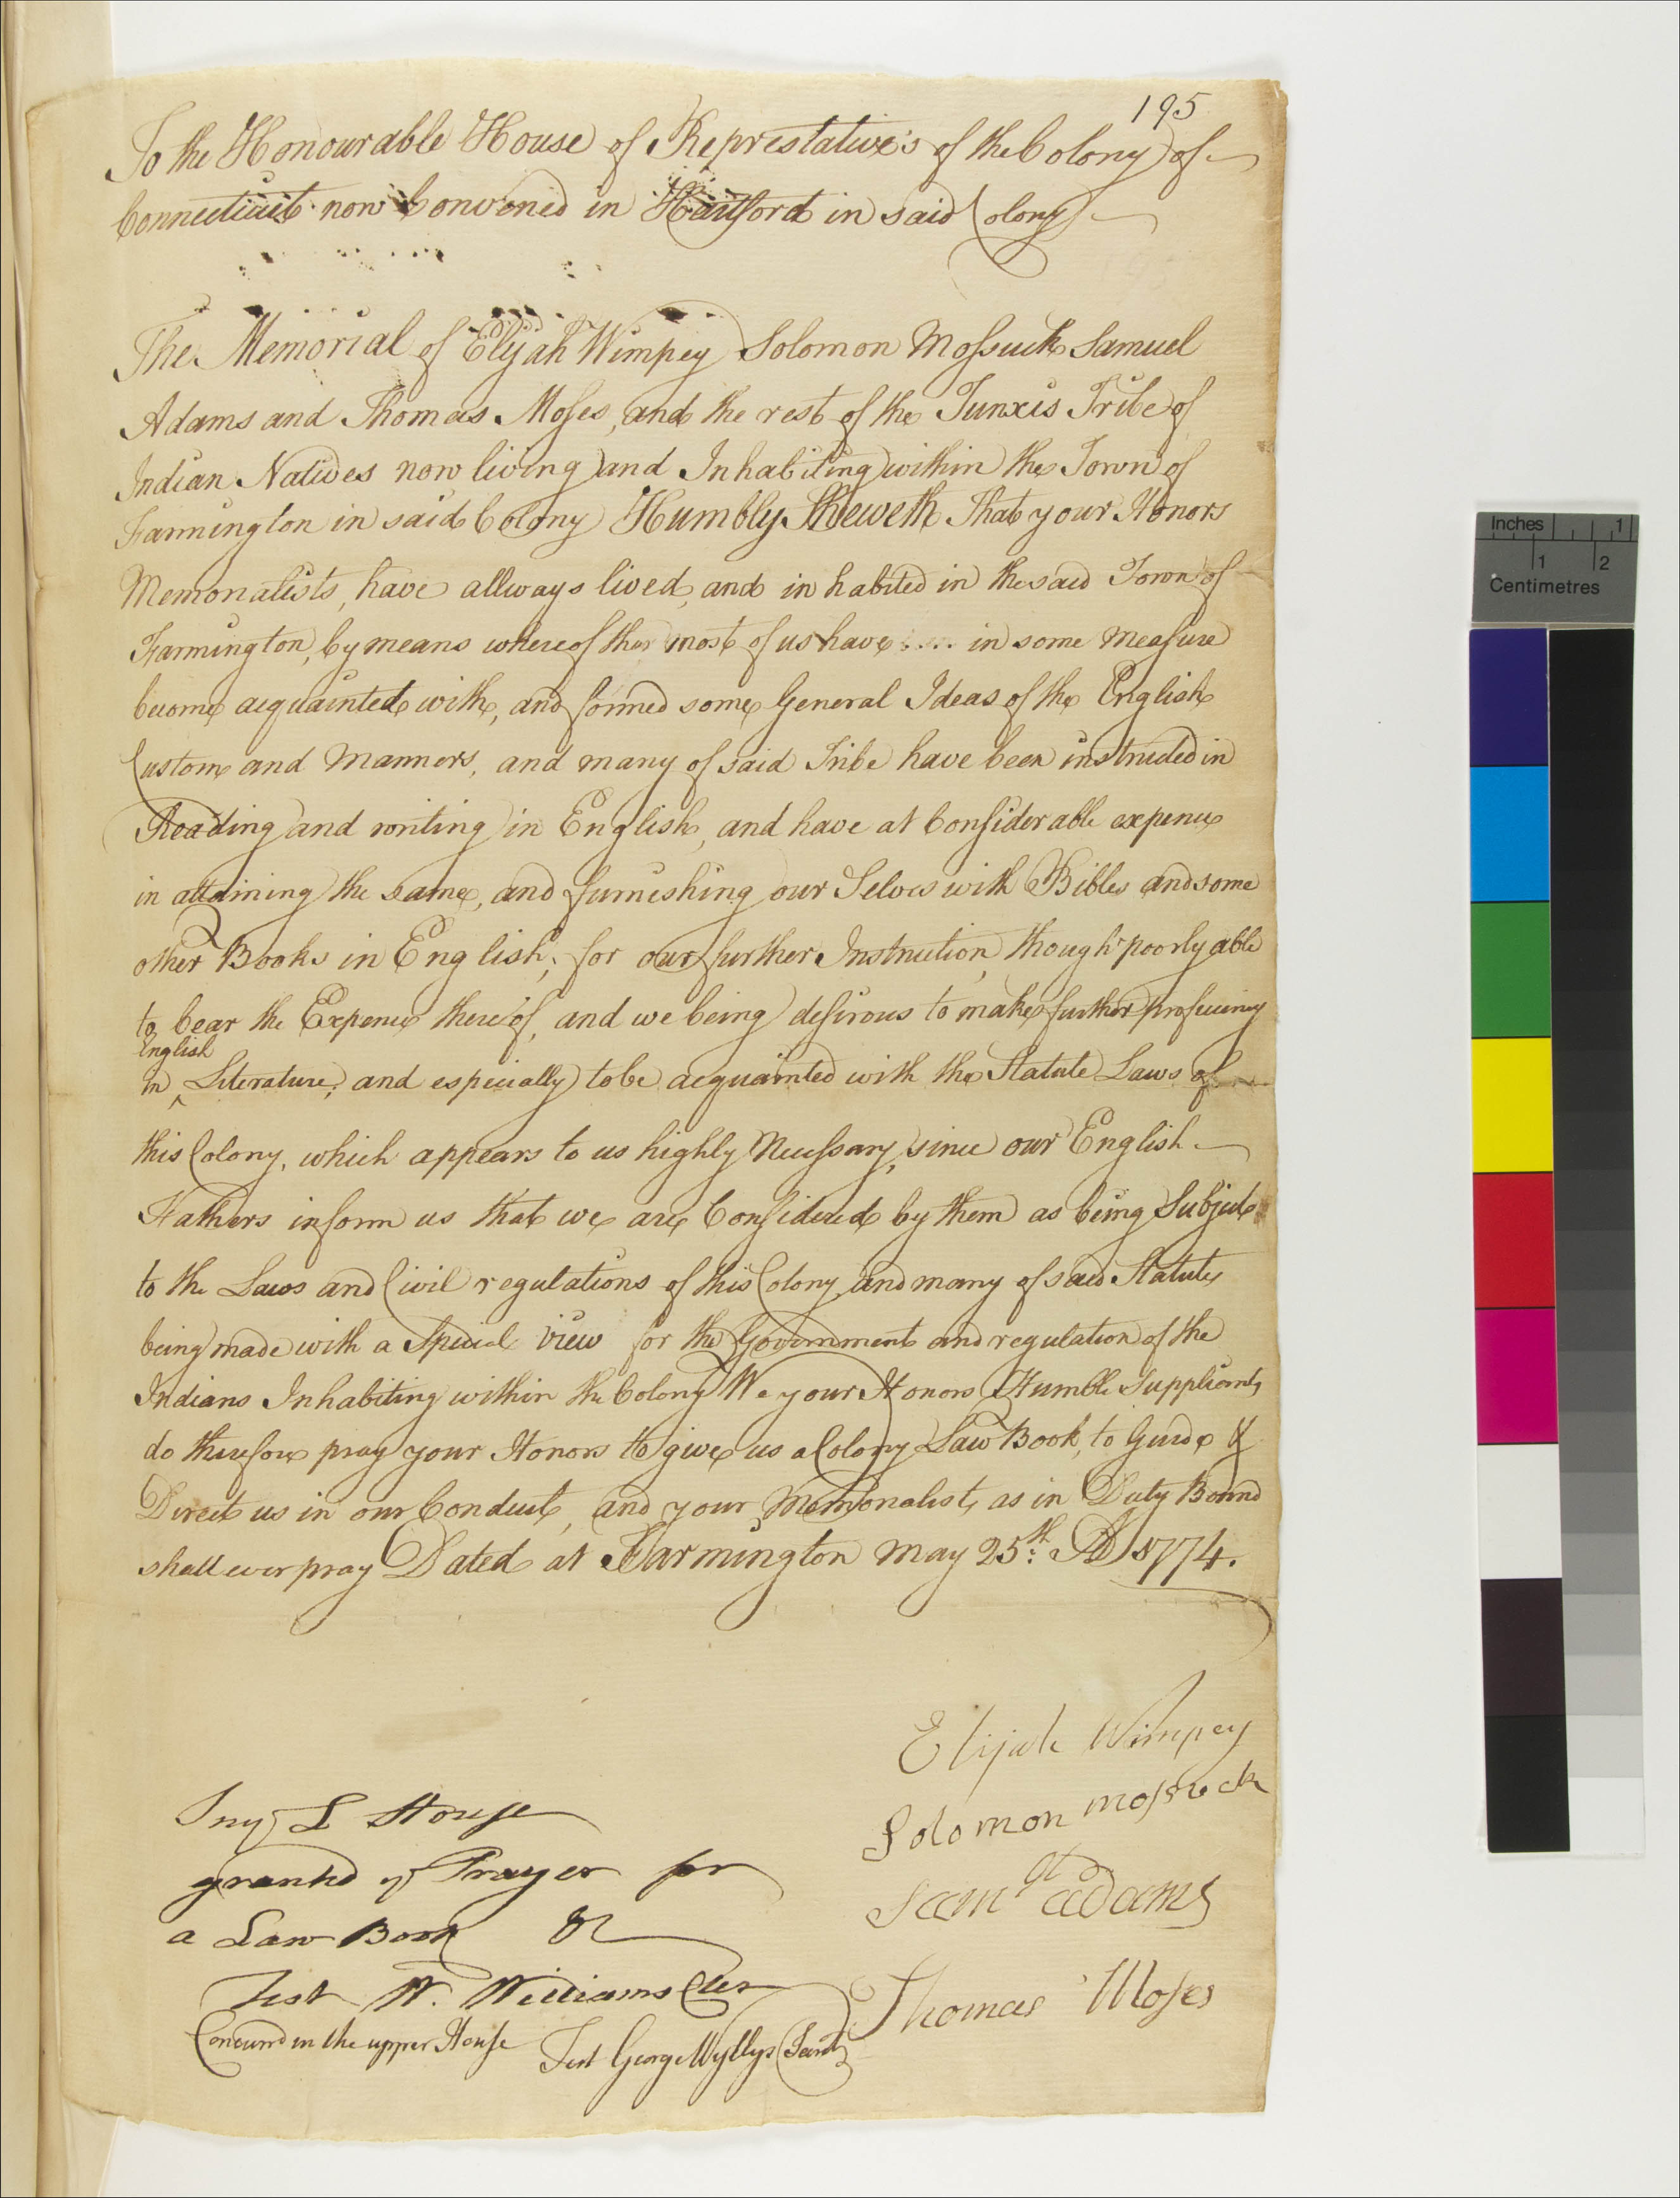 195
To the Honourable House of Represtative's of the Colony of
Connecticut now Convened in Hartford in said Colony
The Memorial of Elijah Wimpey Solomon Mossuck Samuel
Adams and Thomas Moses, and the rest of the Tunxis Tribe of
Indian Natives now living and Inhabiting within the Town of
Farmington in said Colony Humbly Sheweth That your Honors
Memorialists, have allways lived, and in habited in the said Town of
Farmington, by means whereof the most of us have in some measure
become acquainted with, and formed some General Ideas of the English
Custom and Manners, and many of said Tribe have been instructed in
Reading and writing in English, and have at Considerable expence
in attaining the same, and furnishing our Selves with Bibles and some
other Books in English; for our further Instruction, though poorly able
to bear the Expence thereof, and we being desirous to make further proficiency
English
in ‸ Literature; and especially to be acquainted with the Statute Laws of
this Colony, which appears to us highly Necessary, since our English
Fathers inform us that we are Considered by them as being Subject
to the Laws and Civil regulations of this Colony, and many of said Statutes
being made with a Special view for the Government and regulation of the
Indians Inhabiting within the Colony We your Honors Humble Suppliants
do therefore pray your Honors to give us a Colony Law Book, to Guide &
Direct us in our Conduct, and your Memorialists, as in Duty Bound
shall ever pray Dated at Farmington May 25th: AD 1774.
Elijah Wimpey
Solomon mossuck
Samll adams
Thomas Moses
In ye L House
granted ye Prayer for
a Law Book &c
Test W. Williams Cler
Concurrd in the upper House Test George Wyllys Secrety